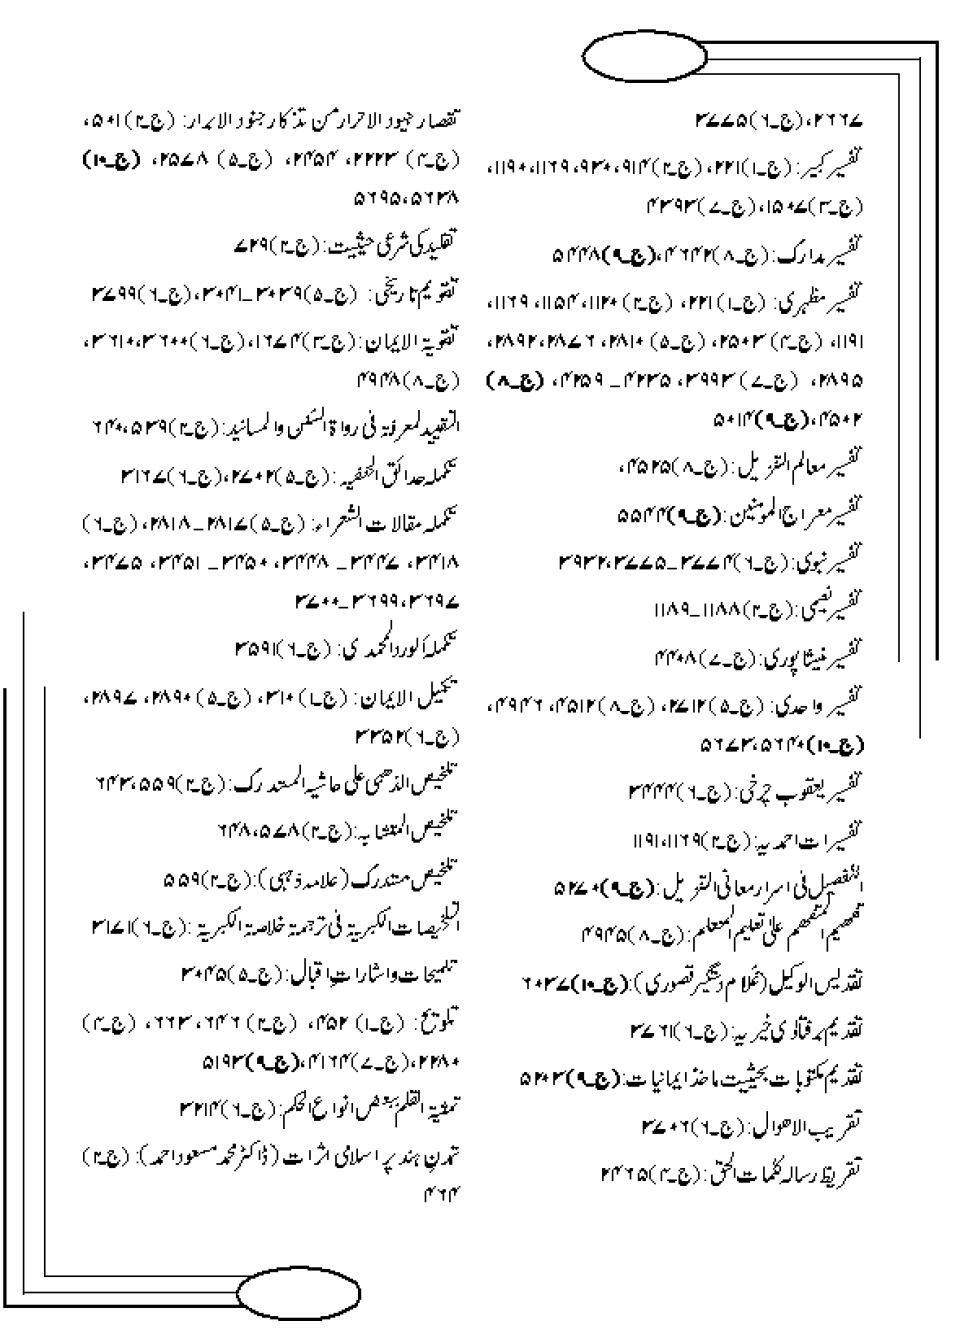 ۲۶۶۷،(ج۔۶)۳۷۷۵
تفسیر کبیر: (ج۔۱)۲۲۱، (ج۔۲)۹۱۴، ۹۳۰، ۱۱۶۹، ۱۱۹۰،
(ج۔۳)۱۵۰۷، (ج۔۷)۴۳۹۳
تفسیر مدارک: (ج۔۸)۴۶۴۲، (ج۔۹)۵۴۴۸
تفسیر مظہری: (ج۔۱)۲۲۱، (ج۔۲)۱۱۲۰، ۱۱۵۴، ۱۱۶۹،
۱۱۹۱، (ج۔۴)۲۵۰۳، (ج۔۵)۲۸۱۰، ۲۸۷۶، ۲۸۹۲،
۲۸۹۵، (ج۔۷)۳۹۹۳، ۴۲۳۵۔۴۲۵۹، (ج۔۸)
۴۵۰۲، (ج۔۹)۵۰۱۴
تفسیر معالم التنزیل: (ج۔۸)۴۵۲۵،
تفسیر معراج المومنین: (ج۔۹)۵۵۴۴
تفسیر نبوی: (ج۔۶)۳۷۷۴۔۳۷۷۵، ۳۹۳۲
تفسیر نعیمی: (ج۔۲)۱۱۸۸۔۱۱۸۹
تفسیر نیشاپوری: (ج۔۷)۴۴۰۸
تفسیر واحدی: (ج۔۵)۲۷۱۲، (ج۔۸)۴۵۱۲، ۴۹۴۶،
(ج۔۱۰)۵۶۴۰، ۵۶۷۳
تفسیر یعقوب چرخی: (ج۔۶)۳۴۴۴
تفسیرات احمدیہ: (ج۔۲)۱۱۶۹، ۱۱۹۱
التفصیل فی اسرار معانی التنزیل: (ج۔۹)۵۲۷۰
تفہیم المتفہم علی تعلیم المتعلم: (ج۔۸)۴۹۴۵
تقدیس الوکیل (غلام دستگیر قصوری): (ج۔۱۰)۶۰۳۷
تقدیم بر فتاوٰی خیریہ: (ج۔۶)۳۷۶۱
تقدیم مکتوبات بحیثیت ماخذ ایمانیات: (ج۔۹)۵۲۰۳
تقریب الاھوال: (ج۔۶)۳۷۰۶
تقریظ رسالہ کلمات الحق: (ج۔۴)۲۴۶۵
تقصار جیود الاحرار من تذکار جنود الابرار: (ج۔۲)۵۰۱،
(ج۔۴)۲۲۲۳، ۲۴۵۴، (ج۔۵)۲۵۷۸، (ج۔۱۰)
۵۶۳۸، ۵۶۹۵
تقلید کی شرعی حیثیت: (ج۔۲)۷۲۹
تقویم تاریخی: (ج۔۵)۳۰۳۹۔۳۰۴۱، (ج۔۶)۳۷۹۹
تقویۃ الایمان: (ج۔۳)۱۶۷۴، (ج۔۶)۳۶۰۰، ۳۶۱۰،
(ج۔۸)۴۹۴۸
التقیید لمعرفۃ فی رواۃ السنن والمسانید: (ج۔۲)۵۳۹، ۶۴۰
تکملہ حدائق الحنفیہ: (ج۔۵)۲۷۰۲، (ج۔۶)۳۱۶۷
تکملہ مقالات الشعراء: (ج۔۵)۲۸۱۷۔۲۸۱۸، (ج۔۶)
۳۴۱۸، ۳۴۴۷۔۳۴۴۸، ۳۴۵۰۔۳۴۵۱، ۳۴۷۵،
۳۶۹۷، ۳۶۹۹۔۳۷۰۰
تکملۂ الورد المحمدی: (ج۔۶)۳۵۹۱
تکمیل الایمان: (ج۔۱)۳۱۰، (ج۔۵)۲۸۹۰، ۲۸۹۷،
(ج۔۶)۳۳۵۲
تلخیص الذھبی علی حاشیہ المستدرک: (ج۔۲)۵۵۹، ۶۴۳
تلخیص المتشابہ: (ج۔۲)۵۷۸، ۶۴۸
تلخیص مستدرک (علامہ ذہبی): (ج۔۲)۵۵۹
التلخیصات الکبریۃ فی ترجمۃ خلاصۃ الکبریۃ: (ج۔۶)۳۱۷۱
تلمیحات واشاراتِ اقبال: (ج۔۵)۳۰۴۵
تلویح: (ج۔۱)۴۵۲، (ج۔۲)۶۴۶، ۶۶۳، (ج۔۴)
۲۲۸۰، (ج۔۷)۴۱۶۴، (ج۔۹)۵۱۹۳
تمشیۃ القلم ببعض انواع الحکم: (ج۔۶)۳۲۱۴
تمدنِ ہند پر اسلامی اثرات (ڈاکٹر محمد مسعود احمد): (ج۔۲)
۴۶۴